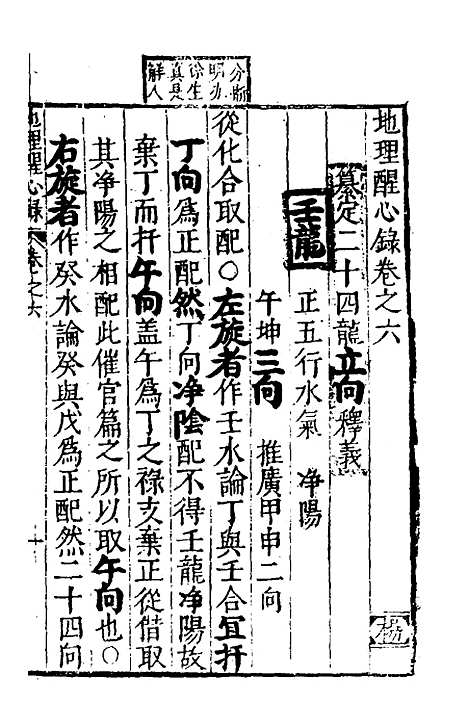 分斷
明办
徐生
真是
解人
地理醒心錄卷之六
纂定二十四龍立向釋義
壬龍
正五行水氣 净陽
午坤三向 推廣甲申二向
從化合取配○左旋者作壬水論丁與壬合宜扦
丁向爲正配然丁向净陰配不得壬龍净陽故
棄丁而扦午向盖午爲丁之祿支棄正從借取
其净陽之相配此催官篇之所以取午向也○
右旋者作癸水論癸與戊爲正配然二十四向
地理醒心錄 卷之六